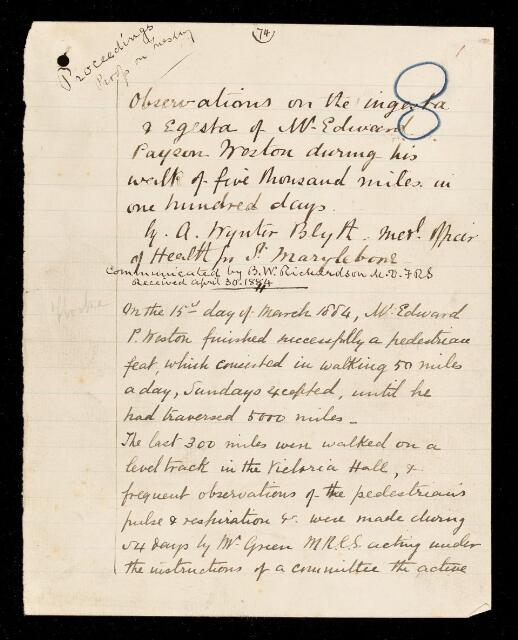 74
1
Proceedings
8
Observations on the ingesta
& Egesta of Mr Edward
Payson Weston during his
walk of five thousand miles in
one hundred days
by. A. Wynter Blyth. Medl. Officer
of Health for St. Marylebone
Communicated by B.W. Richardson M.D. FRS
Received April 30. 1884
On the 15th day of March 1884, Mr. Edward
P. Weston finished successfully a pedestrian
feat, which consisted in walking 50 miles
a day, Sundays excepted, until he
had traversed 5000 miles –
The last 300 miles were walked on a
level track in the Victoria Hall, &
frequent observations of the pedestrian's
pulse & respiration &c. were made during
days by Mr Green M.R.C.S. acting under
the instructions of a committee the active